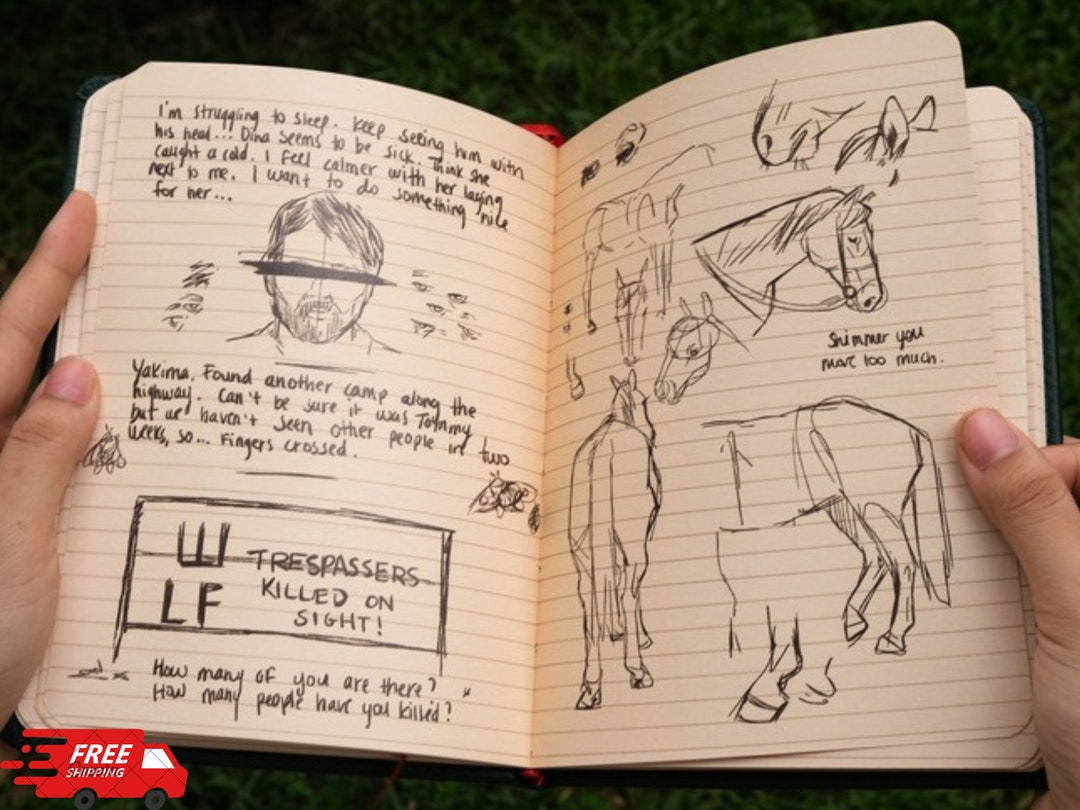 I'm struggling to sleep. Keep seeing him with
his head... Dina seems to be sick. Think she
caught a cold. I feel calmer with her laying
next to me. I want to do something nice
for her...
Yakima. Found another camp along the
highway. Can't be sure it was Tommy
but we haven't seen other people in two
weeks, so... Fingers crossed.
W
LF
TRESPASSERS
KILLED ON
SIGHT!
How many of you are there?
How many people have you killed?
Shimmer you
move too much.
FREE
SHIPPING